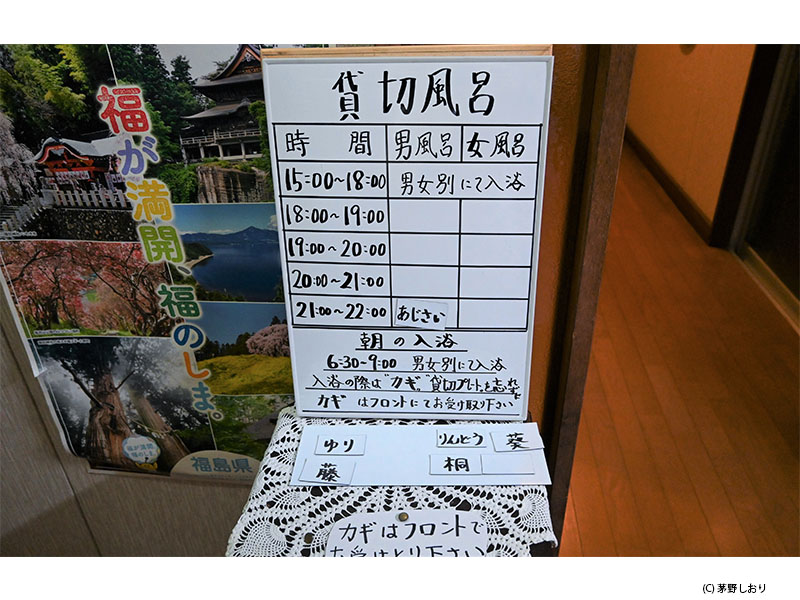 福が満開、福のしま。
福島県
貸切風呂
時間 男風呂 女風呂
15:00~18:00 男女別にて入浴
18:00~19:00
19:00~20:00
20:00~21:00
21:00~22:00 あじさい
朝の入浴
6:30~9:00 男女別にて入浴
入浴の際は"カギ""貸切プレート"を忘れ
カギはフロントにてお受け取り下さい
ゆり りんどう 葵
藤 桐
カギはフロントで
お受けとり下さい
(C) 茅野しおり